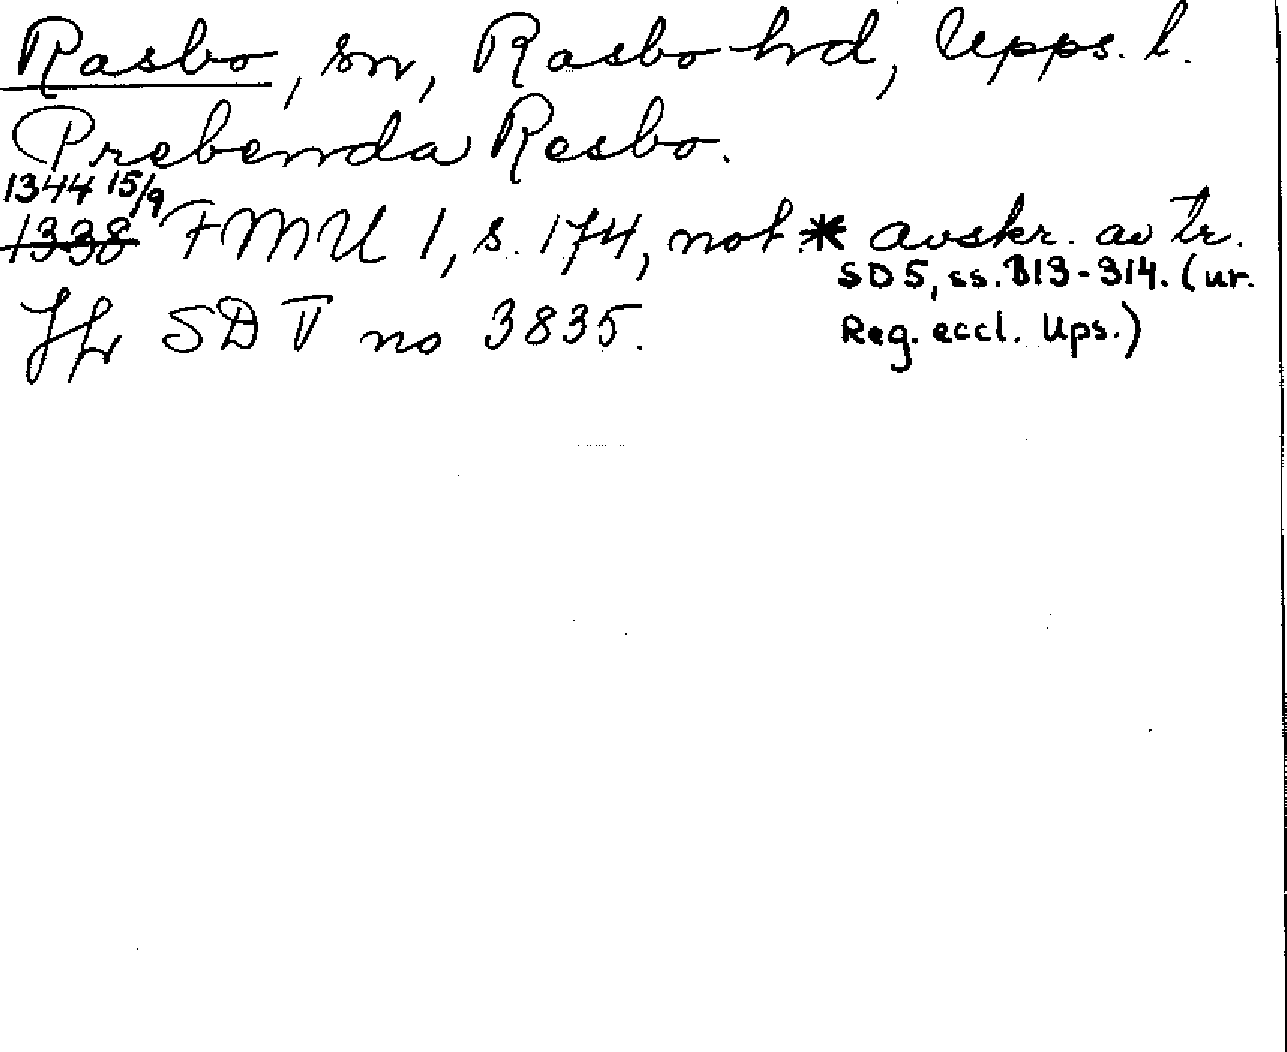 Rasbo, sn, Rasbo hd, Upps. l.
Prebenda Rasbo.
1344 15/9
1338 FMU 1, s. 174, not * avskr. av tr.
SD 5, ss. 313-314. (ur.
Jfr SD V no 3835.
Reg. eccl. Ups.)